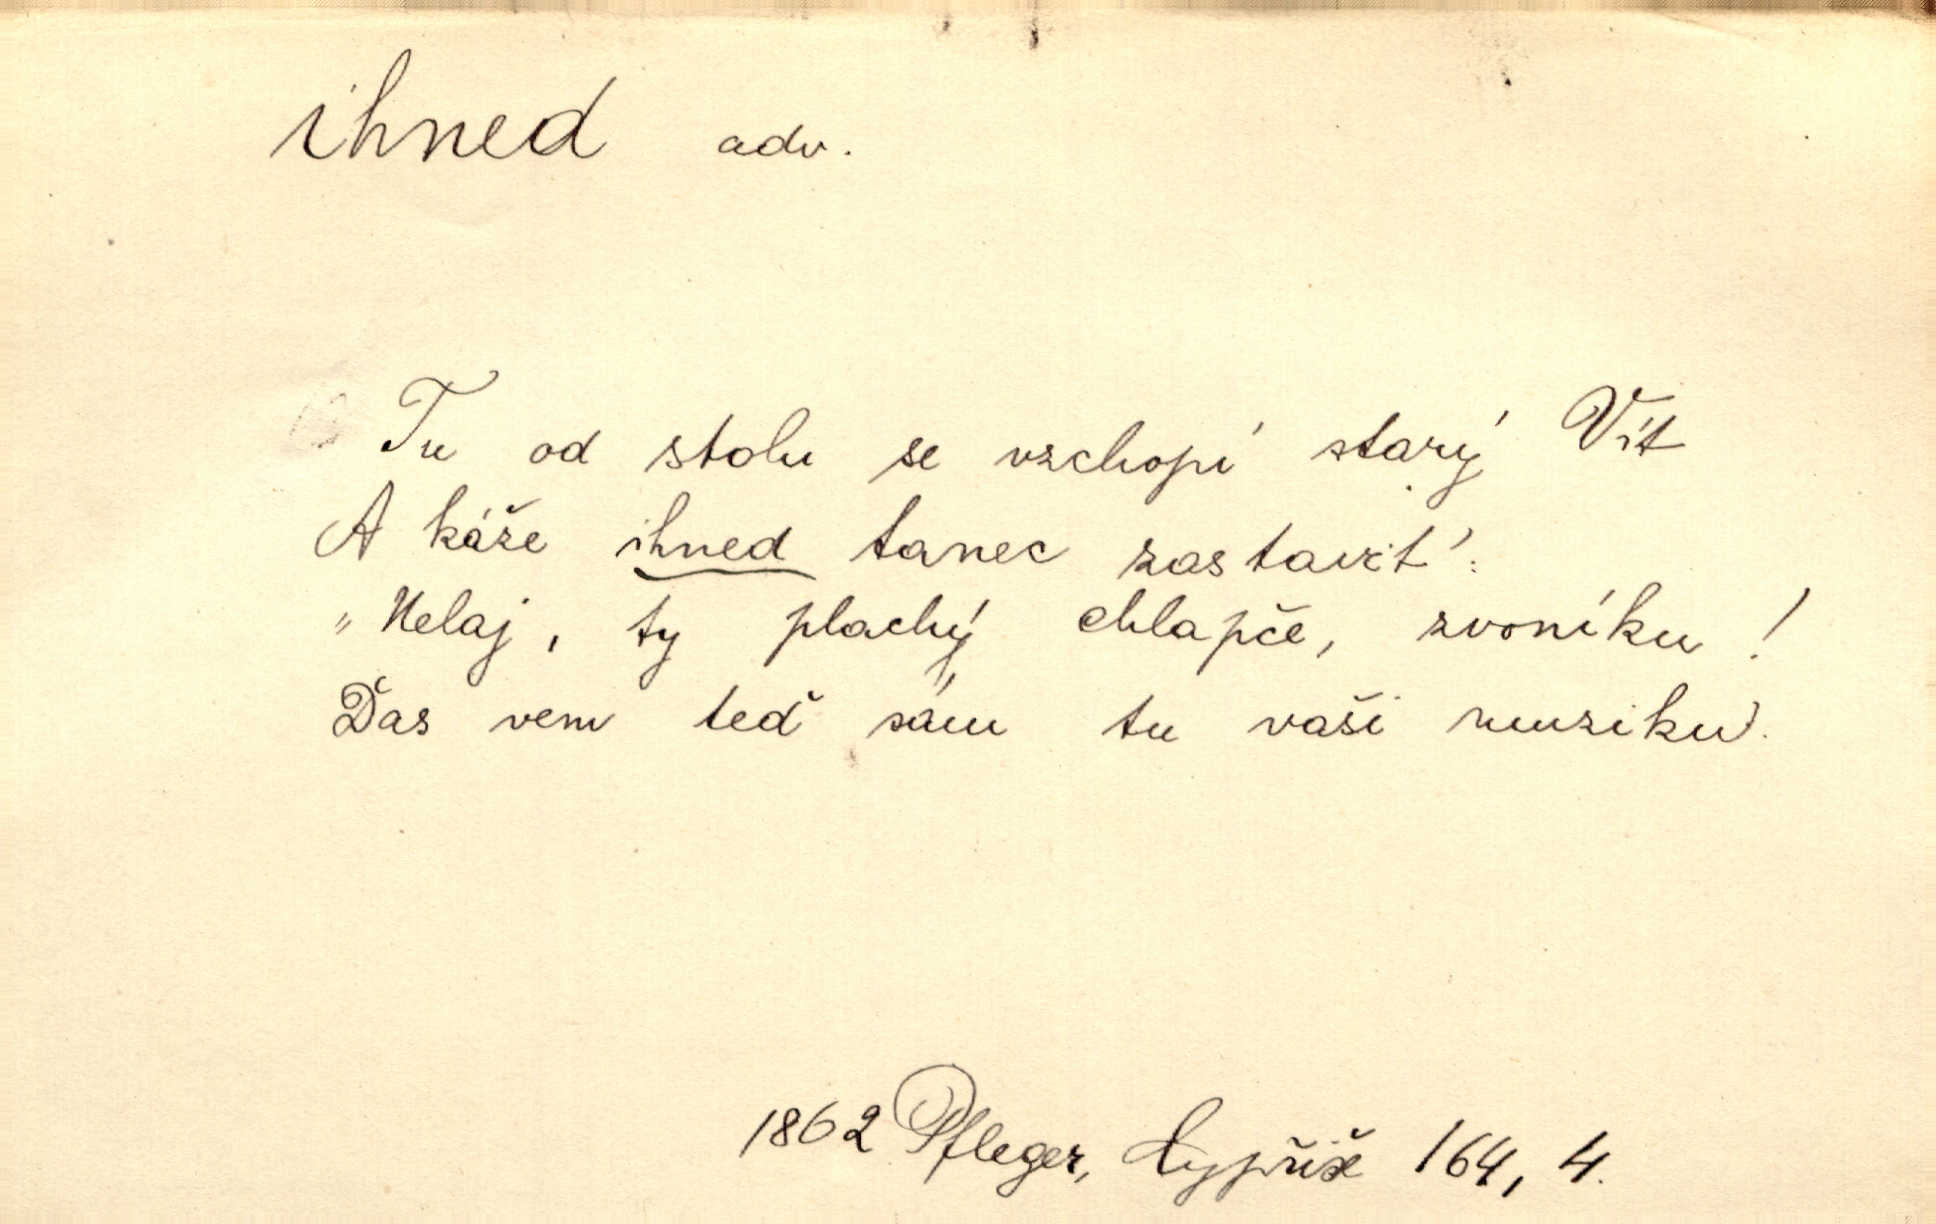 ihned adv.
Tu od stolu se vzchopí starý Vít
A káže ihned tanec zastavit':
"Nelaj, ty plachý chlapče, zvoníku!
Ďas vem teď sám tu vaši muziku.
1862 Pfleger, Cypřiš 164, 4.